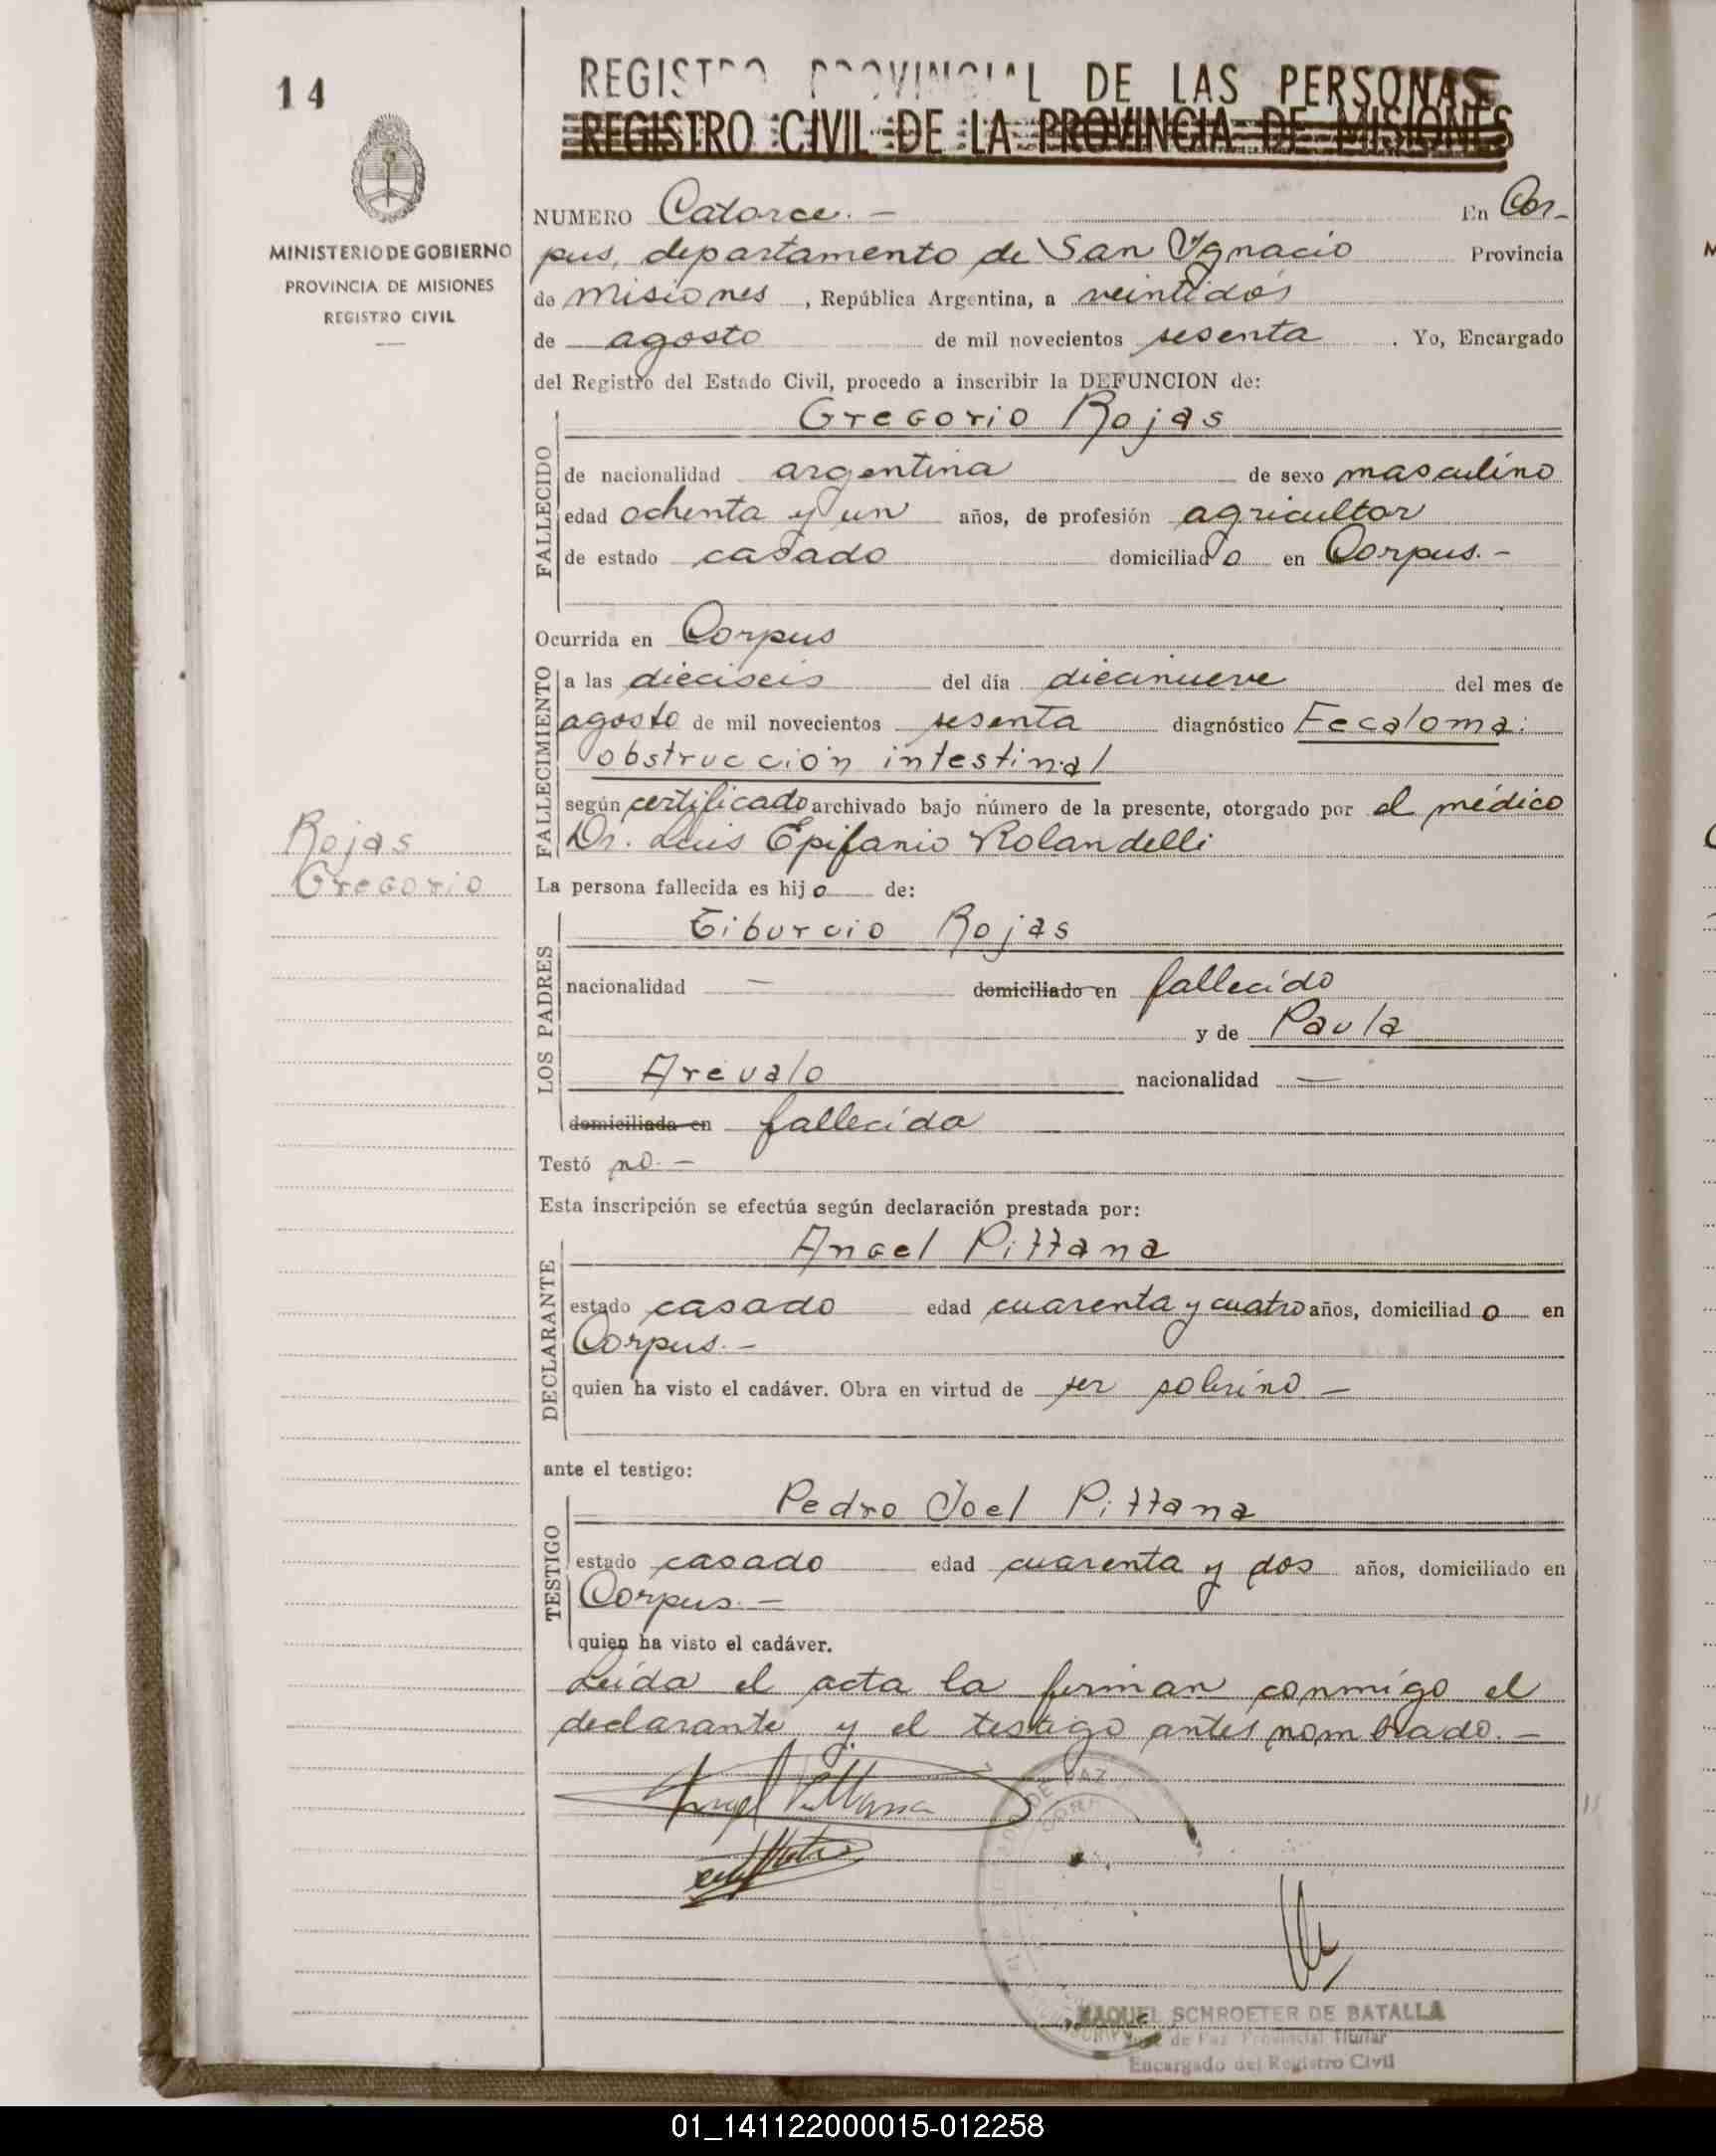 14
REGISTRO PROVINCIAL DE LAS PERSONAS
REGISTRO CIVIL DE LA PROVINCIA DE MISIONES
MINISTERIO DE GOBIERNO
PROVINCIA DE MISIONES
REGISTRO CIVIL
NUMERO Catorce.- En Cor-
pus, departamento de San Ygnacio Provincia
de Misiones, República Argentina, a veintidós
de agosto de mil novecientos sesenta. Yo, Encargado
del Registro del Estado Civil, procedo a inscribir la DEFUNCION de:
Gregorio Rojas
FALLECIDO
de nacionalidad argentina de sexo masculino
edad ochenta y un años, de profesión agricultor
de estado casado domiciliado en Corpus.-
Ocurrida en Corpus
FALLECIMIENTO
a las dieciseis del día diecinueve del mes de
agosto de mil novecientos sesenta diagnóstico Fecaloma:
obstrucción intestinal
según certificado archivado bajo número de la presente, otorgado por el médico
Dr. Luis Epifanio Rolandelli
Rojas
Gregorio
La persona fallecida es hijo de:
LOS PADRES
Tiburcio Rojas
nacionalidad — domiciliado en fallecido
y de Paula
Arévalo nacionalidad —
domiciliada en fallecida
Testó no.-
Esta inscripción se efectúa según declaración prestada por:
DECLARANTE
Angel Pittana
estado casado edad cuarenta y cuatro años, domiciliado en
Corpus.-
quien ha visto el cadáver. Obra en virtud de ser sobrino-
ante el testigo:
TESTIGO
Pedro Joel Pittana
estado casado edad cuarenta y dos años, domiciliado en
Corpus.-
quien ha visto el cadáver.
Leída el acta la firman conmigo el
declarante y el testigo antes nombrado.-
Angel Pittana
DE PAZ
RAQUEL SCHROETER DE BATALLA
de Paz Provincial Titular
Encargado del Registro Civil
01_141122000015-012258